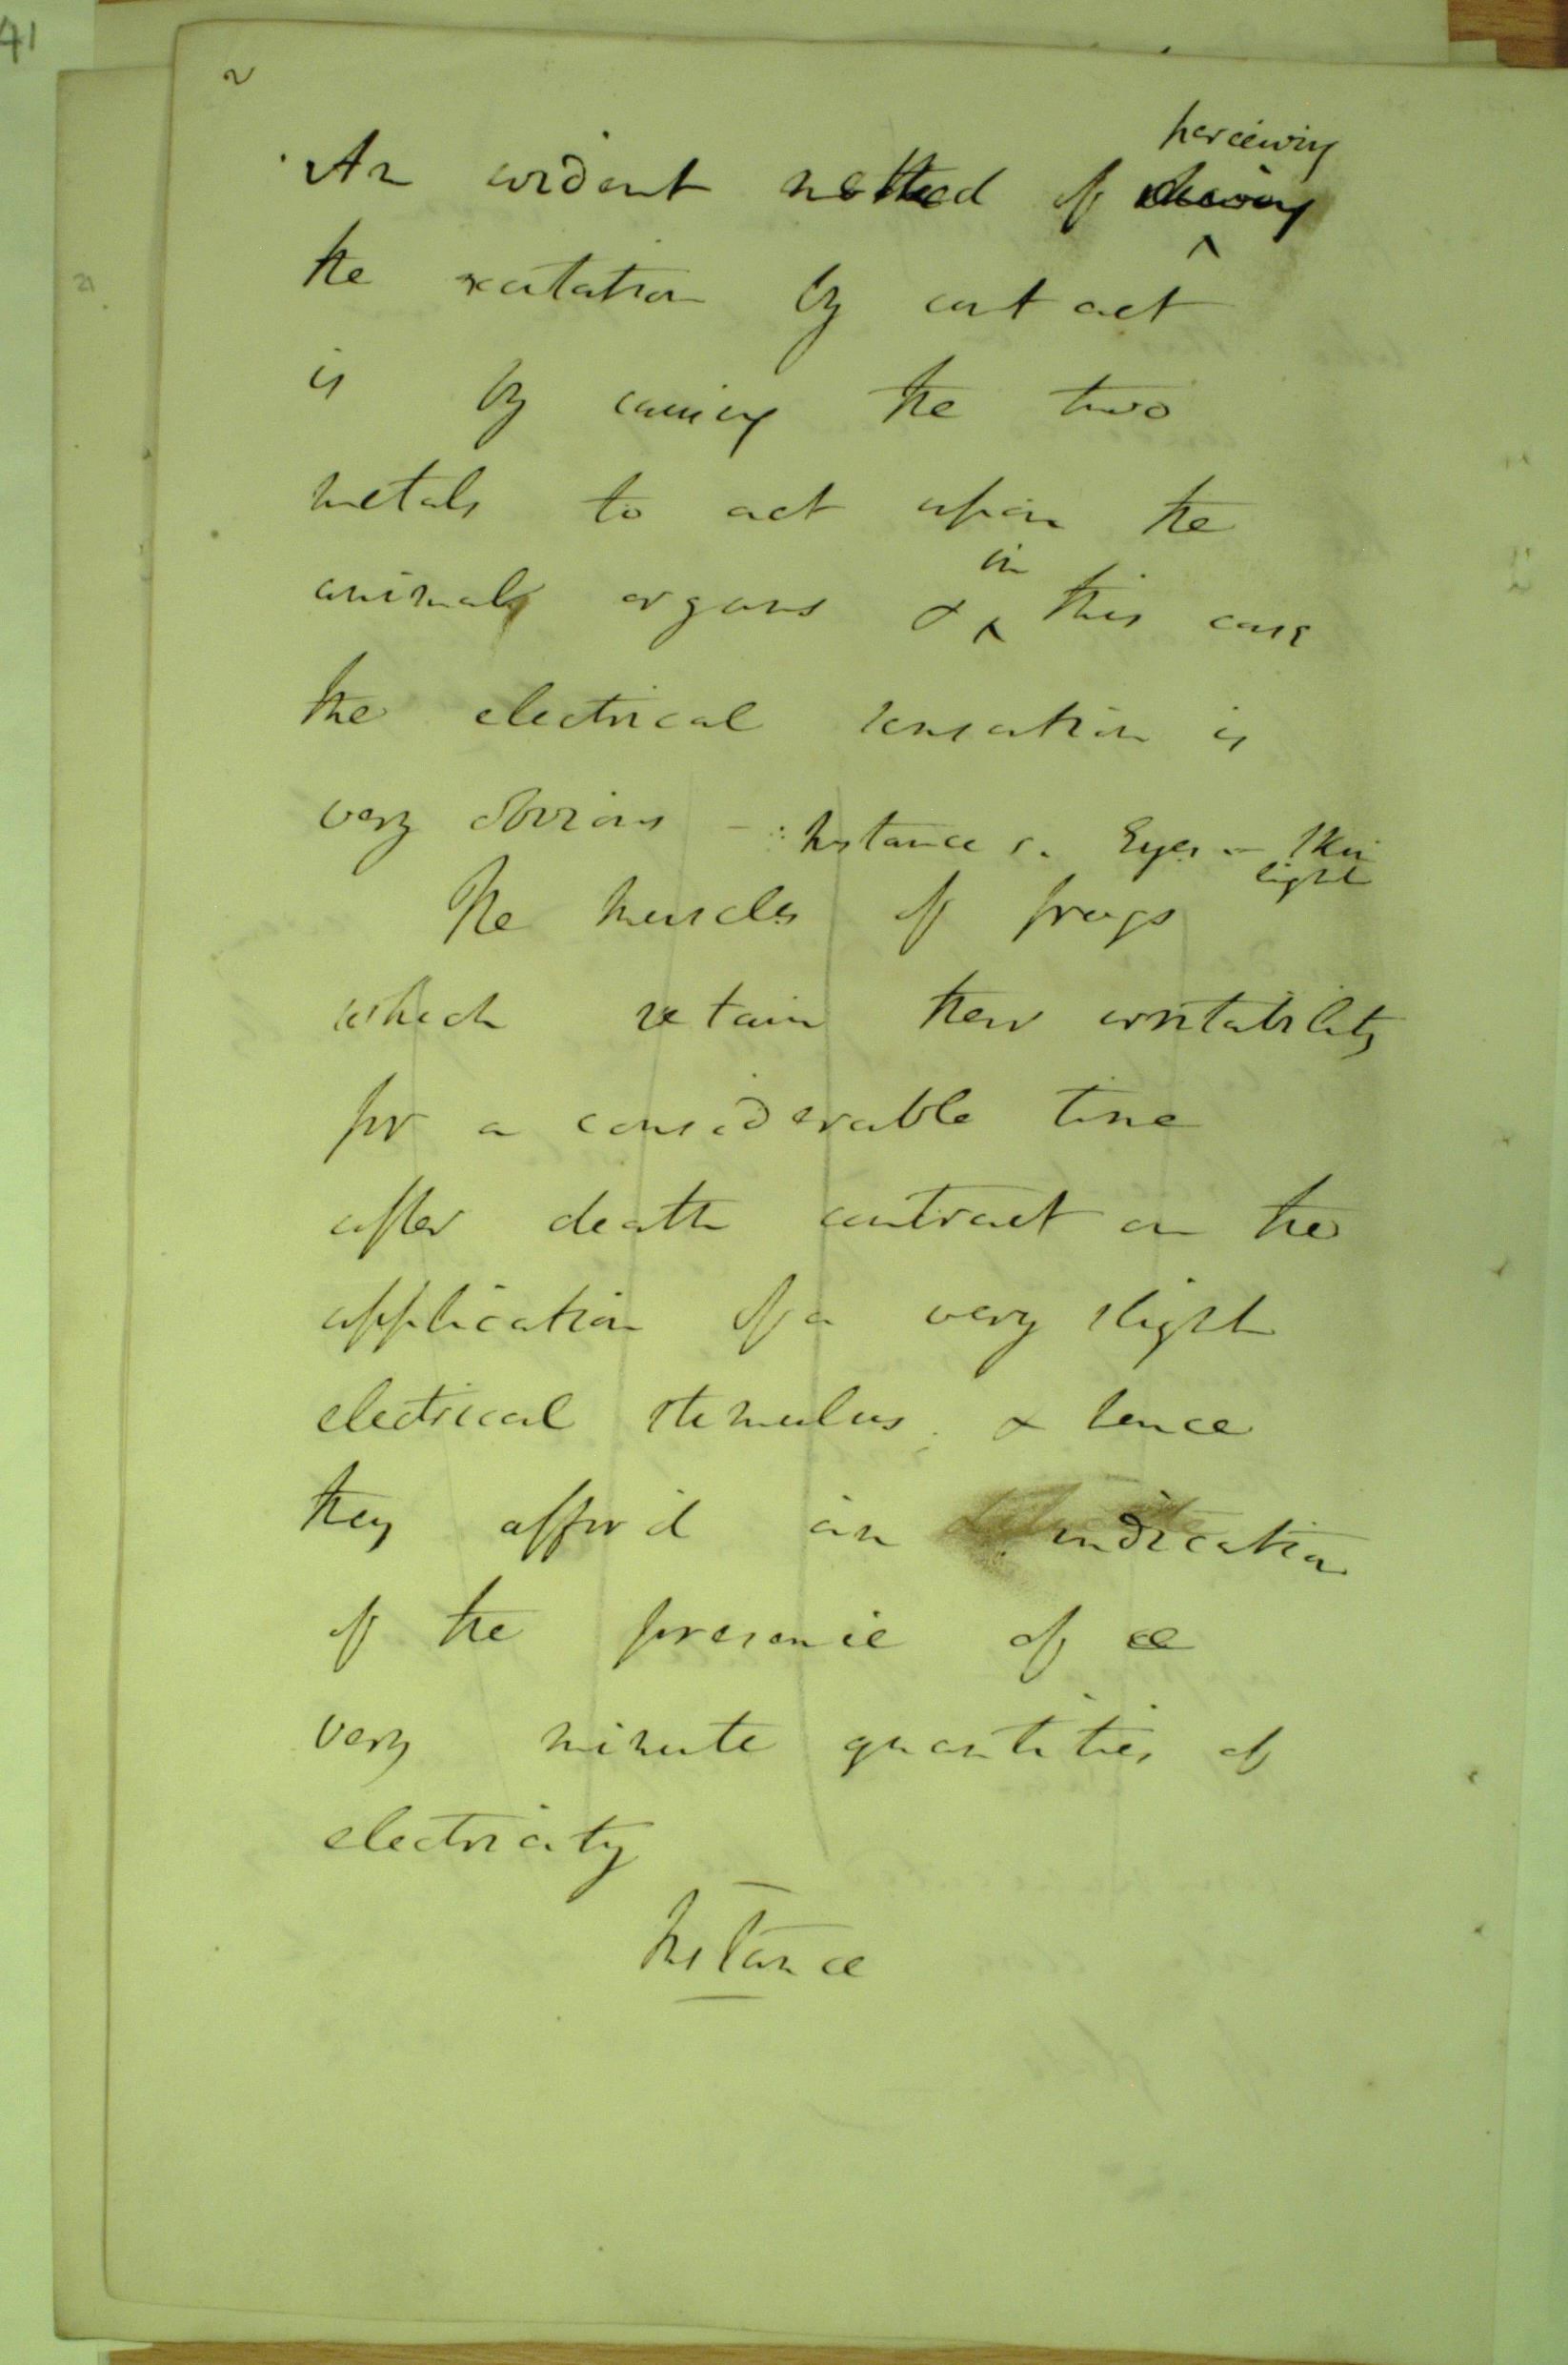 41
2
perceiving
An evident method of
the excitation by contact
is by causing the two
metals to act upon the
in
animal organs & ^ this case
the electrical sensation is
very obvious – :Instances. Eyes – Skin
light
The muscles of frogs
which retain their irritability
for a considerable time
after death contract on the
application of a very slight
electrical stimulus; & hence
they afford an indication
of the presence of
very minute quantities of
electricity
Instance
21